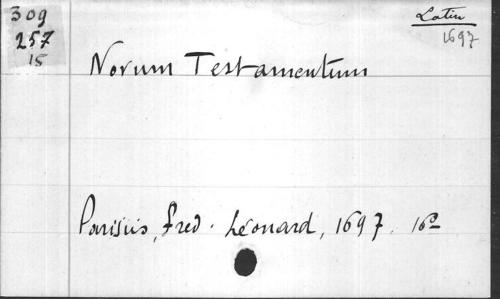 309
257
15
Latin
1697
Novum Testamentum
Parisiis, Fred. Léonard, 1697. 16º